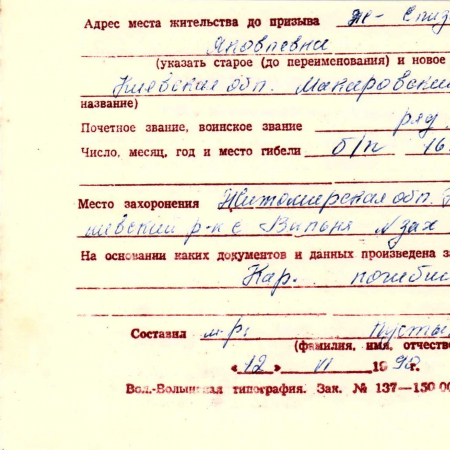 Адрес места жительства до призыва же- Елиз
Яковлевна
(указать старое (до переименования) и новое
Киевская обл. Макаровский
название)
Почетное звание, воинское звание ряд
Число, месяц, год и место гибели б/п 16
Место захоронения Житомирская обл.
р-н с Вильня
На основании каких документов и данных произведена з
Кар. погибш
Составил м-р: Пусты
(фамилия, имя, отчество
«12» VI 1990г.
Вол.-Волынская типография. Зак. № 137—150 00